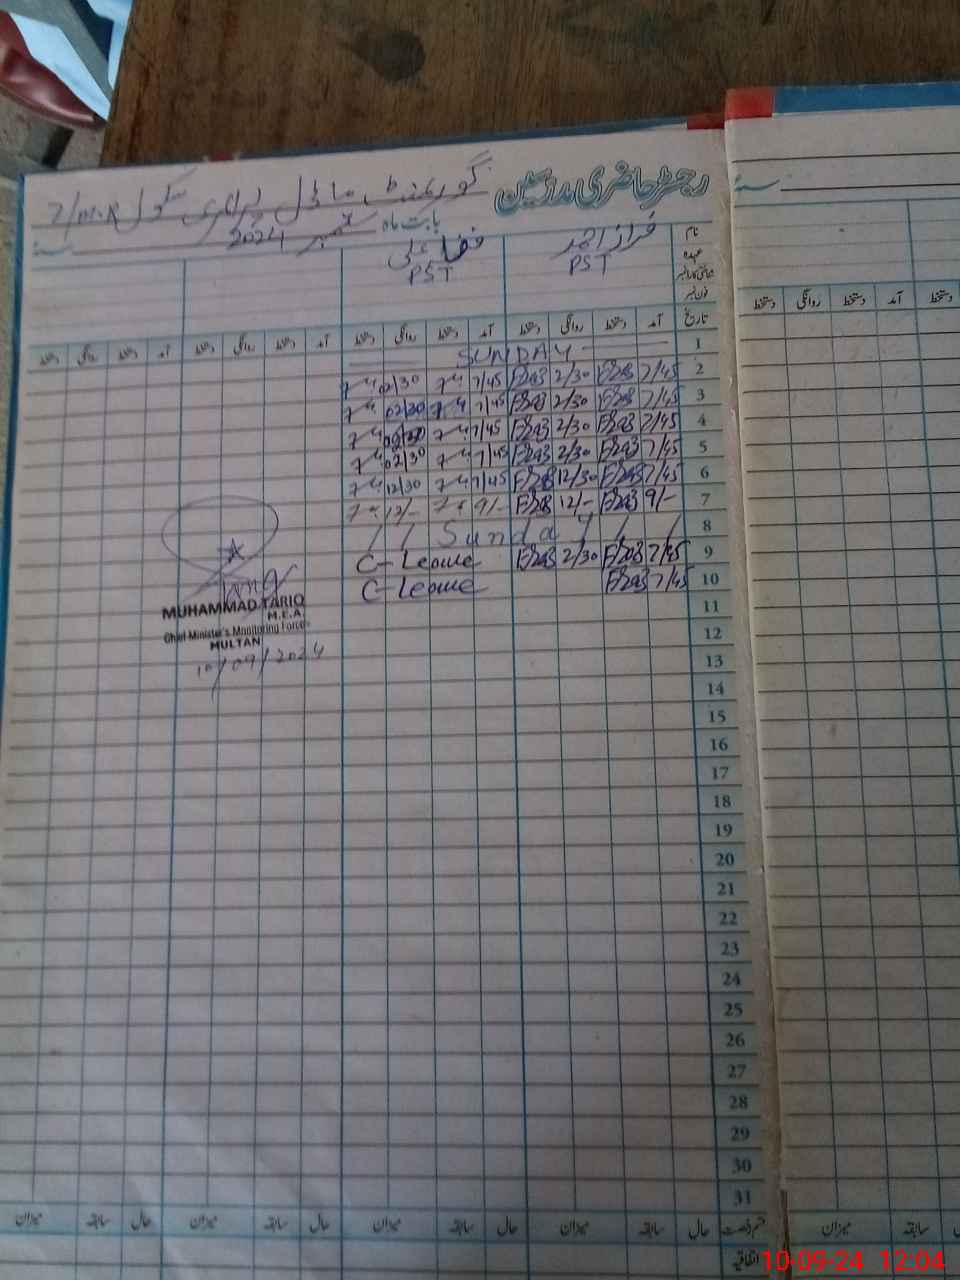 رجسٹر حاضری مدرسین گورنمنٹ ماڈل پرائمری سکول 7/M.R
بابت ماہ ستمبر 2024 سنہ
نام فراز احمد
عہدہ PST PST
شناختی کارڈ نمبر
فون نمبر
تاریخ آمد دستخط روانگی دستخط آمد دستخط روانگی دستخط آمد دستخط روانگی دستخط آمد دستخط روانگی دستخط
1 SUNDAY
2 7/45 2/30 7/45 02/30
3 7/45 2/30 7/45 02/30
4 7/45 2/30 7/45
5 7/45 2/30 7/45 02/30
6 7/45 12/30 7/45 12/30
7 9/- 12/- 9/- 12/-
8 Sunday
9 7/45 2/30 C-Leave
10 7/45 C-Leave
11
12
13
14
15
16
17
18
19
20
21
22
23
24
25
26
27
28
29
30
31
MUHAMMAD TARIQ
M.E.A.
Chief Minister's Monitoring Force
MULTAN
10/09/2024
قسم رخصت حال سابقہ میزان حال سابقہ میزان حال سابقہ میزان حال سابقہ میزان
اتفاقیہ
سنہ
دستخط آمد دستخط روانگی دستخط
سابقہ میزان
10-09-24 12:04